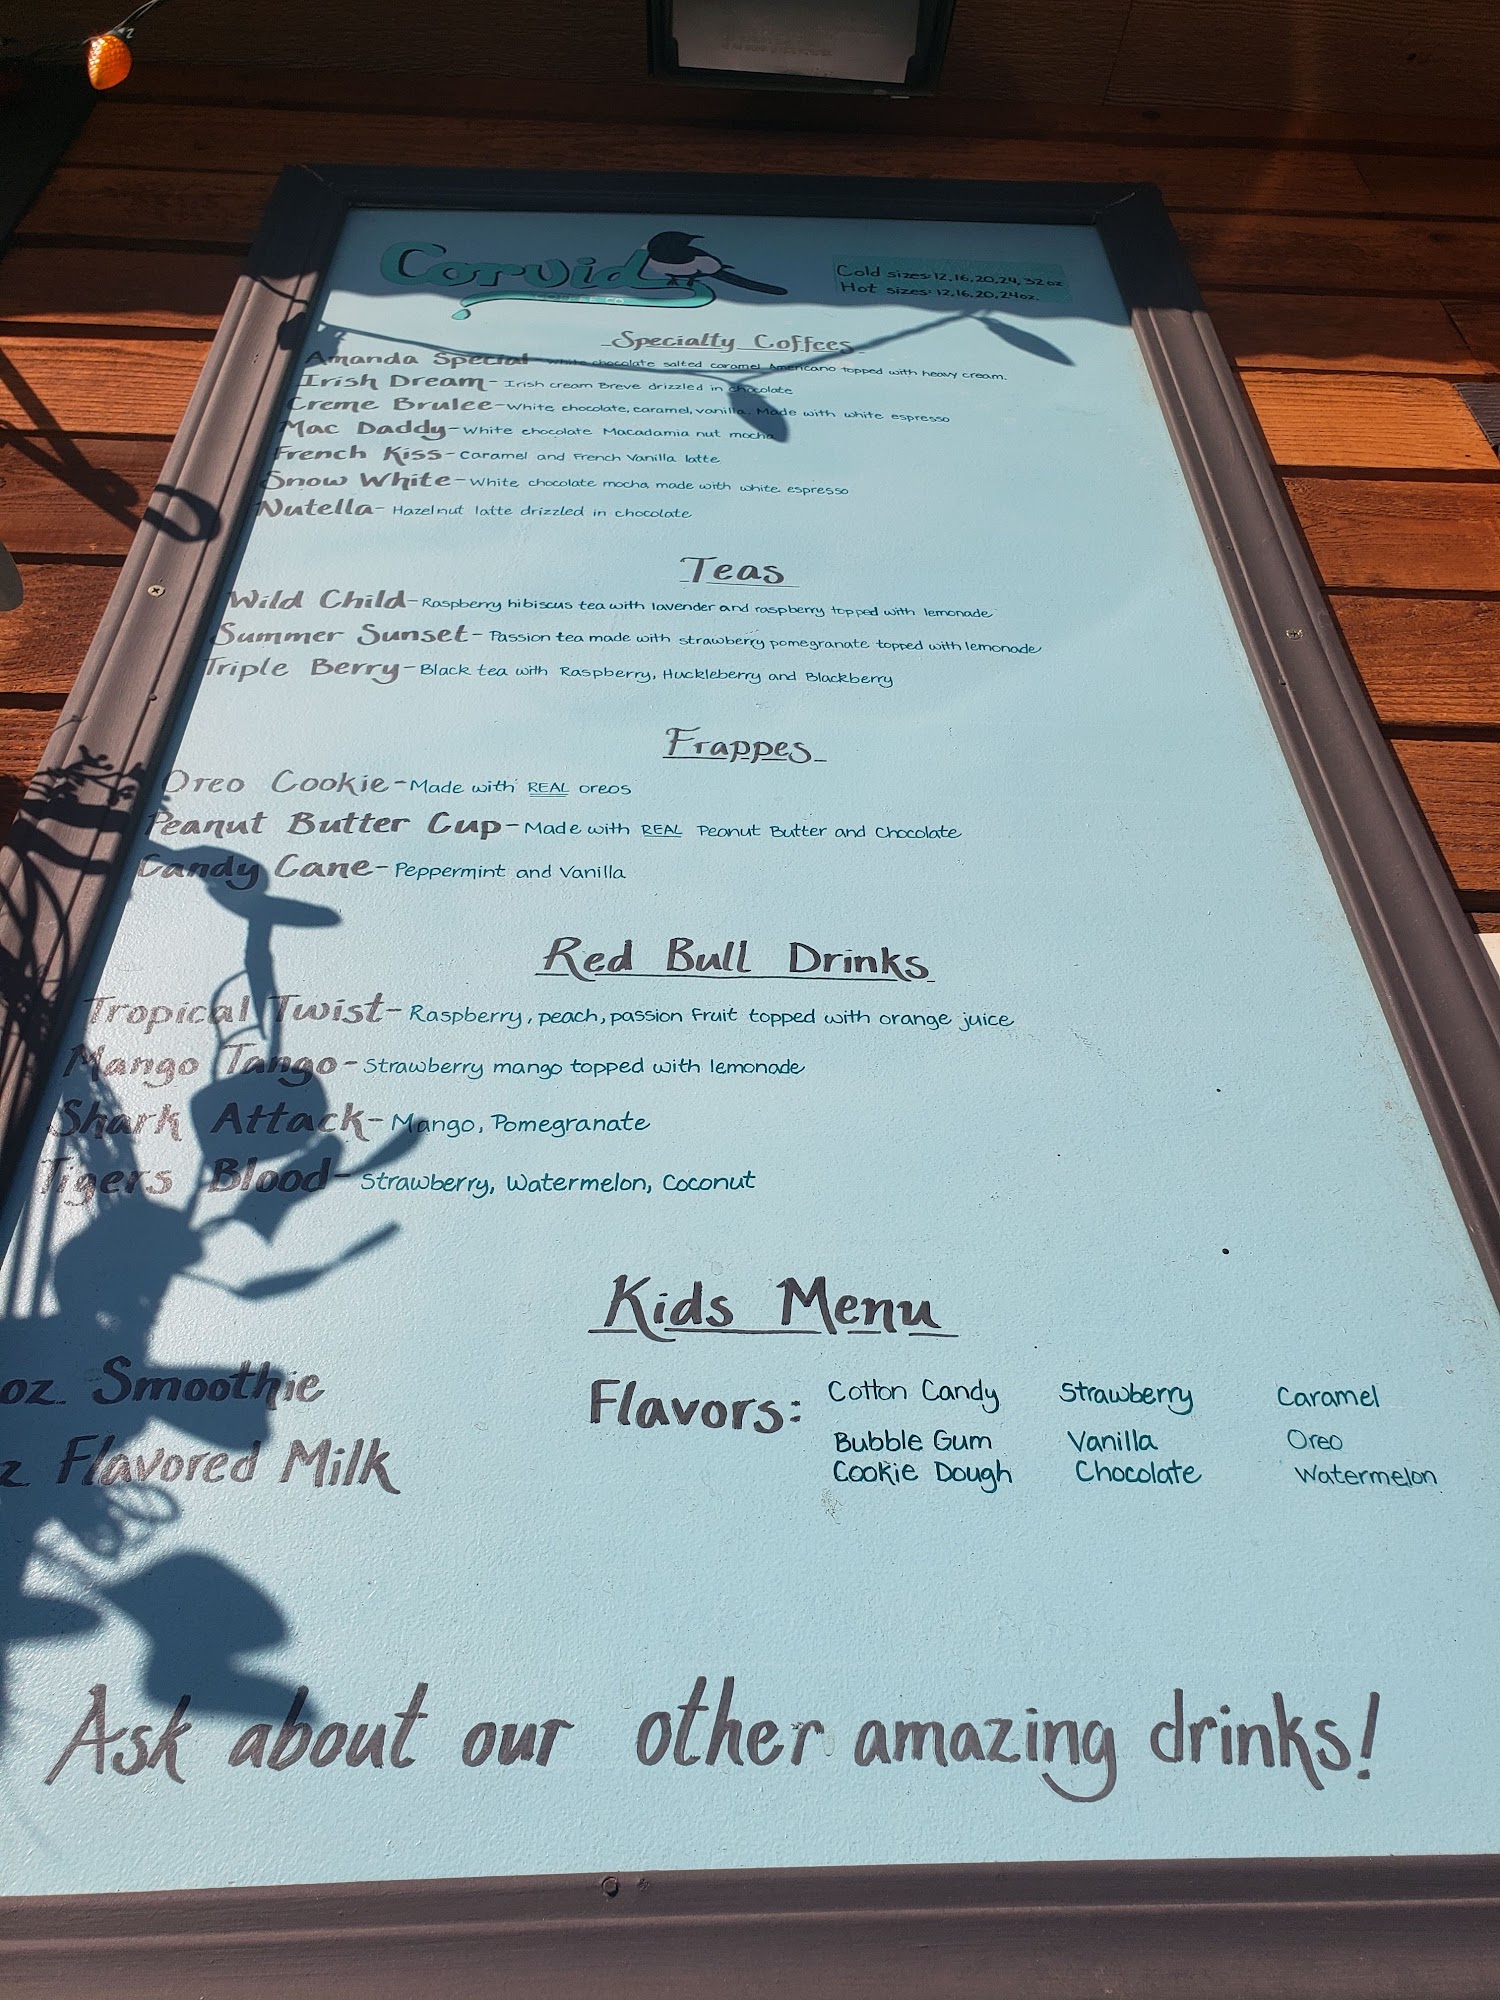 Corvid
COFFEE CO.
Cold sizes: 12, 16, 20, 24, 32 oz
Hot sizes: 12, 16, 20, 24oz.
Specialty Coffees
Amanda Special - White chocolate salted caramel Americano topped with heavy cream.
Irish Dream - Irish cream Breve drizzled in chocolate
Creme Brulee - White chocolate, caramel, vanilla. Made with white espresso
Mac Daddy - White chocolate Macadamia nut mocha
French Kiss - Caramel and French Vanilla latte
Snow White - White chocolate mocha made with white espresso
Nutella - Hazelnut latte drizzled in chocolate
Teas
Wild Child - Raspberry hibiscus tea with lavender and raspberry topped with lemonade
Summer Sunset - Passion tea made with strawberry pomegranate topped with lemonade
Triple Berry - Black tea with Raspberry, Huckleberry and Blackberry
Frappes
Oreo Cookie - Made with REAL oreos
Peanut Butter Cup - Made with REAL Peanut Butter and Chocolate
Candy Cane - Peppermint and Vanilla
Red Bull Drinks
Tropical Twist - Raspberry, peach, passion fruit topped with orange juice
Mango Tango - Strawberry mango topped with lemonade
Shark Attack - Mango, Pomegranate
Tigers Blood - Strawberry, Watermelon, Coconut
Kids Menu
oz. Smoothie
z Flavored Milk
Flavors: Cotton Candy Strawberry Caramel
Bubble Gum Vanilla Oreo
Cookie Dough Chocolate Watermelon
Ask about our other amazing drinks!